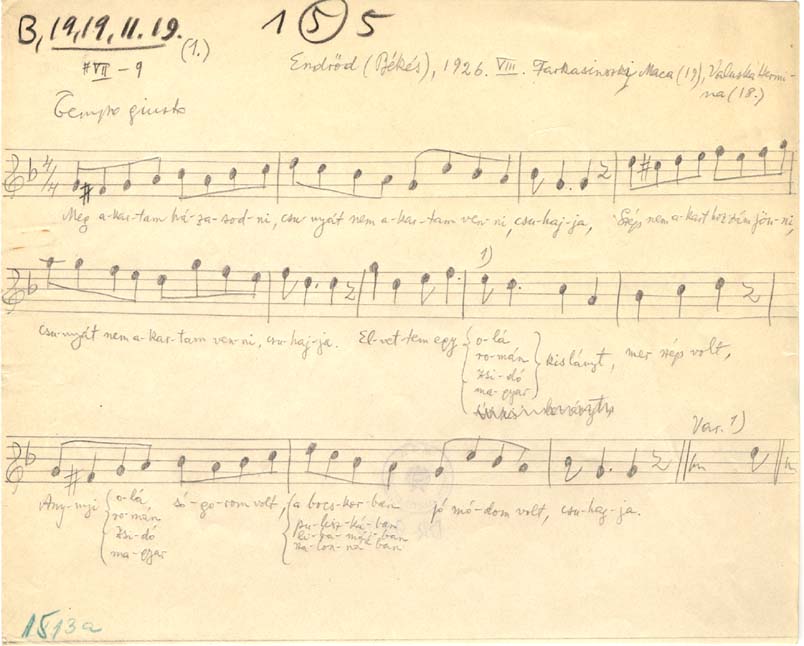 B, 19, 19, 11. 19. 1 5 5
(1.)
#VII - 9
Endrőd (Békés), 1926. VIII. Maca (19), Valuska Hermi-
na (18.)
Tempo giusto
4/4
Meg a-kar-tam há-za-sod-ni, csu-nyát nem a-kar-tam ven-ni, csuhaj-ja, Szép nem akart hozzám jön-ni,
csu-nyát nem a-kar-tam ven-ni, csu-haj-ja. El-vet-tem egy o-lá kislányt, mer szép volt,
ro-mán
zsi-dó
ma-gyar
1)
Var. 1)
Any-nyi o-lá, só-go-rom volt, a bocs-kor-ban jó mó-dom volt, csu-haj-ja.
ro-mán
zsi-dó
ma-gyar
1513a